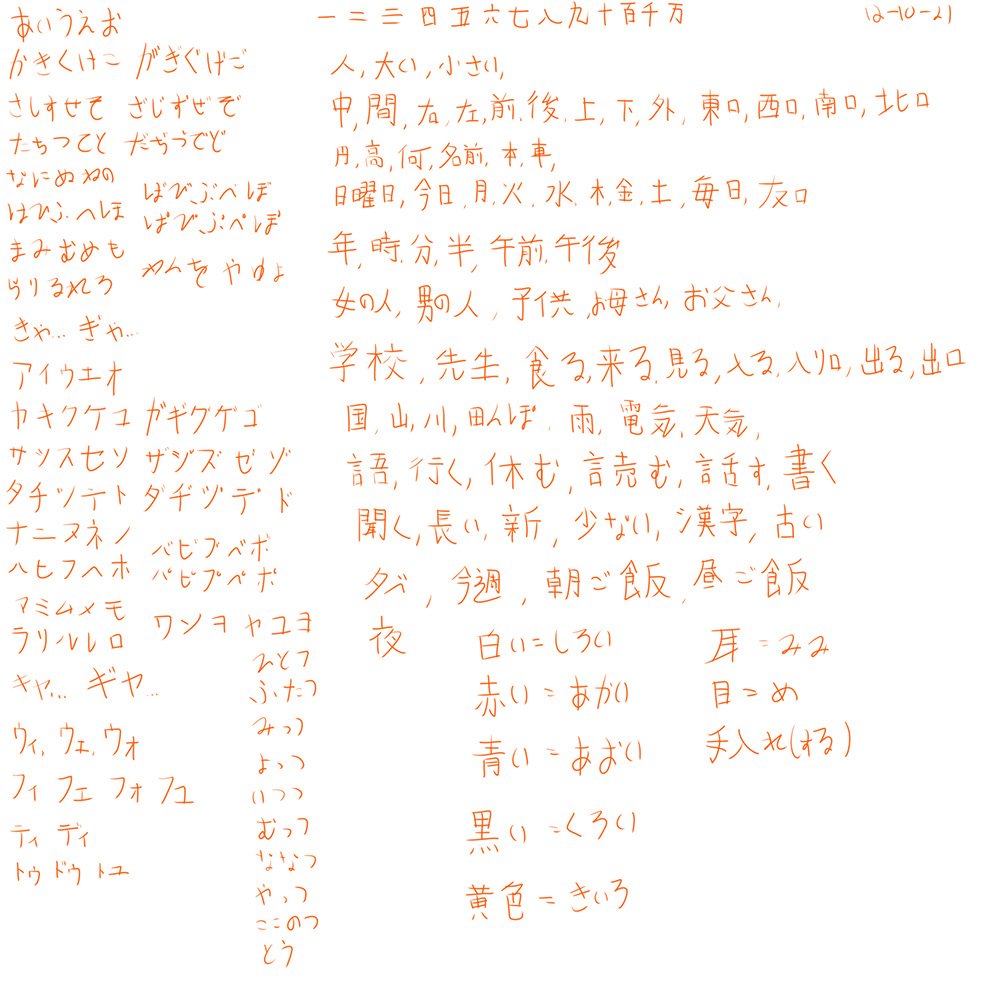 あいうえお
かきくけこ がぎぐげご
さしすせそ ざじずぜぞ
たちつてと だぢづでど
なにぬねの
はひふへほ ばびぶべぼ
ぱぴぷぺぽ
まみむめも
らりるれろ わんを やゆよ
きゃ... ぎゃ...
アイウエオ
カキクケコ ガギグゲゴ
サシスセソ ザジズゼゾ
タチツテト ダヂヅデド
ナニヌネノ
ハヒフヘホ バビブベボ
パピプペポ
マミムメモ
ラリルレロ ワンヲ ヤユヨ
キャ... ギャ...
ウィ, ウェ, ウォ
フィ フェ フォ フュ
ティ ディ
トゥ ドゥ トュ
ひとつ
ふたつ
みっつ
よっつ
いつつ
むっつ
ななつ
やっつ
ここのつ
とう
一二三四五六七八九十百千万
12-10-21
人, 大い, 小さい,
中, 間, 右, 左, 前, 後, 上, 下, 外, 東口, 西口, 南口, 北口
円, 高, 何, 名前, 本, 車,
日曜日, 今日, 月, 火, 水, 木, 金, 土, 毎日, 友口
年, 時, 分, 半, 午前, 午後
女の人, 男の人, 子供, お母さん, お父さん,
学校, 先生, 食る, 来る, 見る, 入る, 入り口, 出る, 出口
国, 山, 川, 田んぼ, 雨, 電気, 天気,
語, 行く, 休む, 読む, 話す, 書く
聞く, 長い, 新, 少ない, 漢字, 古い
夕べ, 今週, 朝ご飯, 昼ご飯
夜
白い=しろい
赤い=あかい
青い=あおい
黒い=くろい
黄色=きいろ
耳=みみ
目=め
手入れ(する)